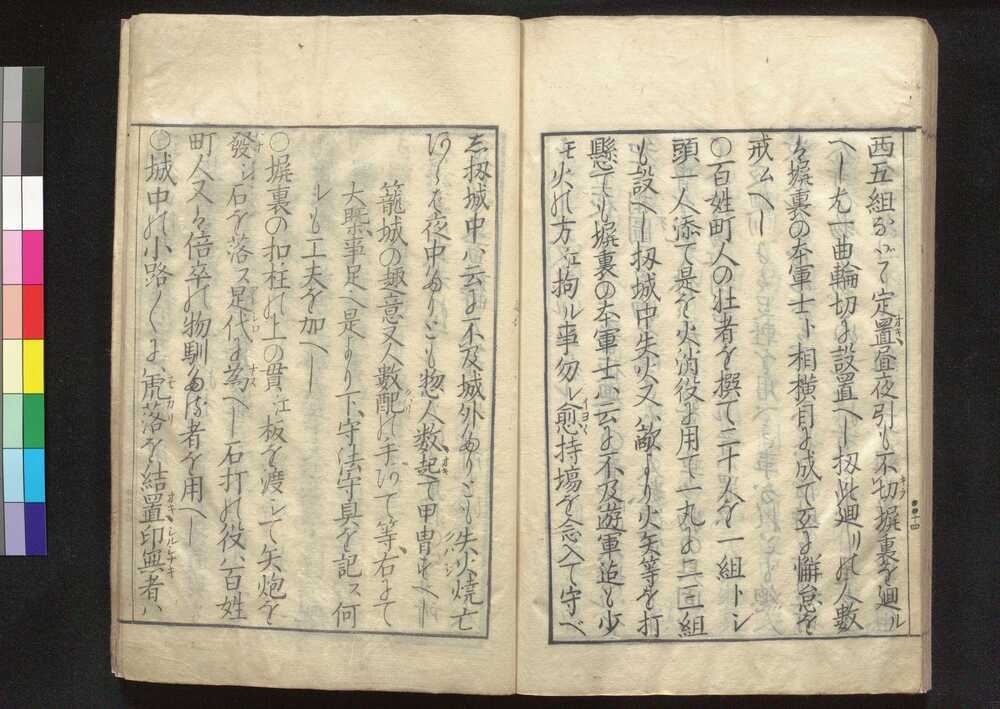 西五組ツヽ定置昼夜引も不切塀裏を廻ル
へし尤一曲輪切に設置へし扨此廻りの人数
と塀裏の本軍士ト相横目に成て互に懈怠を
戒ムへし
○百姓町人の壮者を撰て二十人を一組トシ
頭一人添て是を火消役に用て一丸に二三組
も設へし扨城中失火又ハ敵より火矢等を打
懸ても塀裏の本軍士ハ云に不及遊軍迄も少
モ火の方江拘ル事勿レ愈持場を念入て守べ
し扨城中ハ云に不及城外たりとも失火焼亡
あらは夜中たりとも惣人数起て甲冑すへし
籠城の趣意又人数配の手あて等右にて
大概事足へし是より下守法守具を記ス何
レも工夫を加へし
○塀裏の扣柱の上の貫江板を渡して矢炮を
發シ石を落ス足代に為へし石打の役ハ百姓
町人又ハ倍卒の物馴たる者を用へし
○城中の小路〱にハ虎落を結置印無者ハ